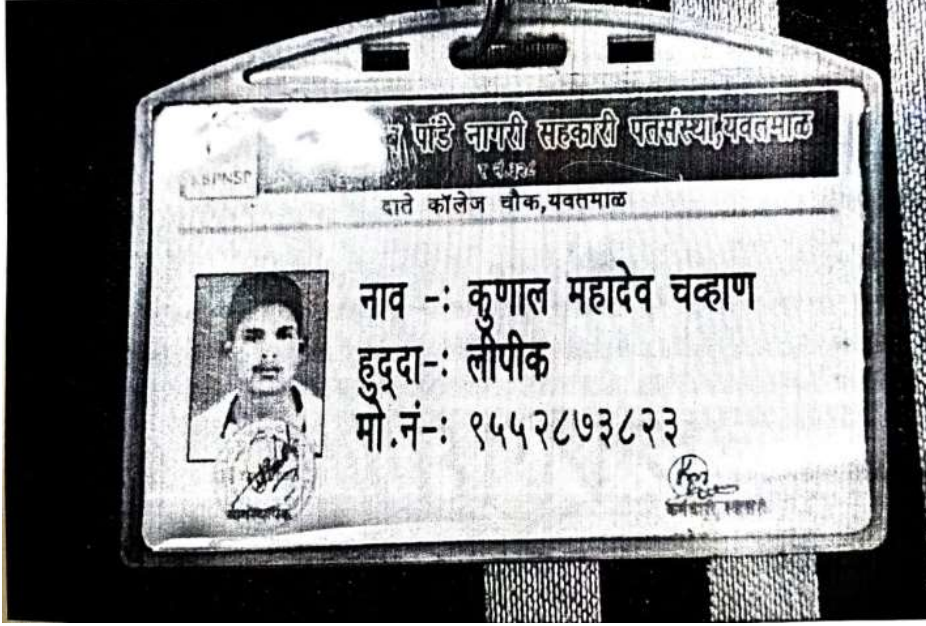 पांडे नागरी सहकारी पतसंस्था,यवतमाळ
KBPNSP
दाते कॉलेज चौक,यवतमाळ
नाव -: कुणाल महादेव चव्हाण
हुद्दा-: लीपीक
मो.नं-: ९५५२८७३८२३
कर्मचारी स्वाक्षरी